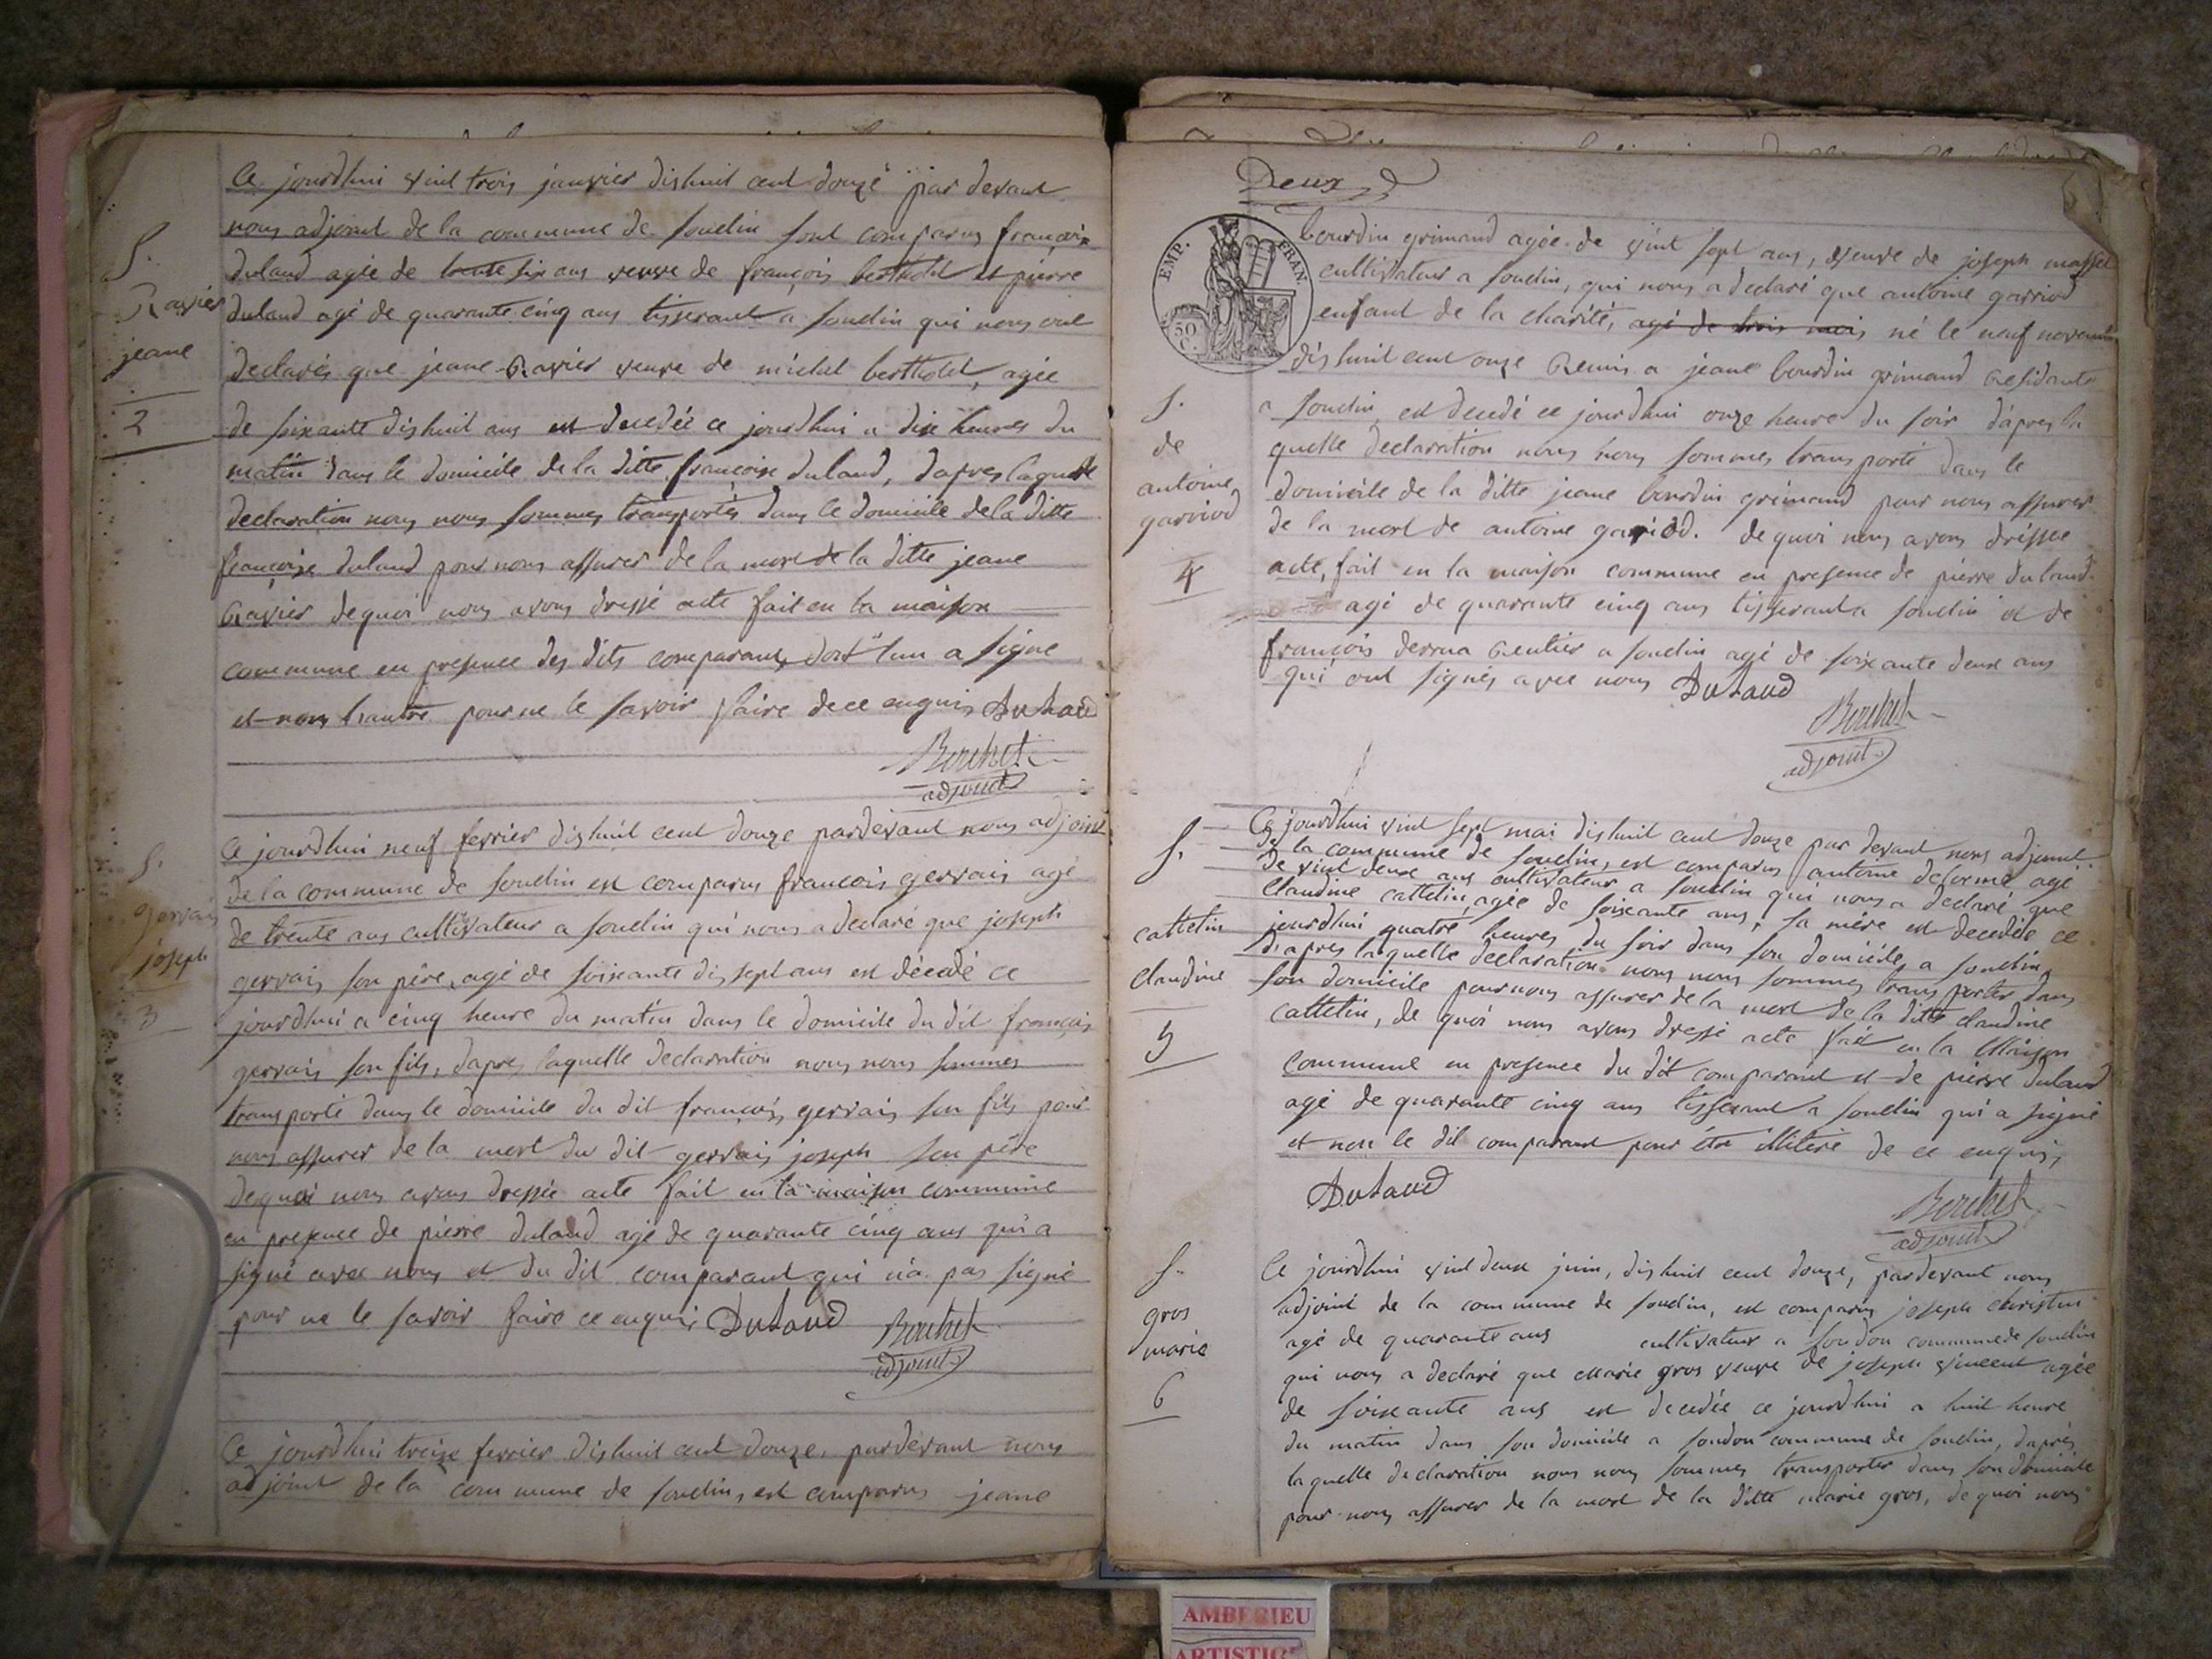 Ce jourdhui vint trois janvier dishuit cent douze par devant
nous adjoint de la commune de soudin sont comparus françoise
duland agée de trente six ans veuve de françois bertholet et pierre
duland agé de quarante cinq ans tisserant a soudin qui nous ont
declarés que jeane Ravier veuve de michel bertholet, agée
de soixante dishuit ans est decedée ce jourdhui a dix heures du
matin dans le domicile de la ditte françoise duland, dapres laquelle
declaration nous nous sommes transportés dans le domicile de la ditte
françoise duland pour nous assurer de la mort de la ditte jeane
Ravier de quoi nous avons dressé acte fait en la maison
commune en presence des dits comparans dont l'un a signe
et non l'autre pour ne le savoir faire de ce enquis Dulaud
Berchet
adjoint
S.
Ravier
jeane
2
Ce jourdhui neuf fevrier dishuit cent douze pardevant nous adjoint
de la commune de soudin est comparus francois gervais agé
de trente ans cultivateur a soudin qui nous a declaré que joseph
gervais son père, agé de soixante dis sept ans est décédé ce
jourdhui a cinq heure du matin dans le domicile du dit françois
gervais son fils, dapres laquelle declaration nous nous sommes
transporté dans le domicile du dit françois gervais son fils pour
nous assurer de la mort du dit gervais joseph son père
de quoi nous avons dressée acte fait en la maison commune
en presence de pierre duland agé de quarante cinq ans qui a
signé avec nous et du dit comparant qui n'a pas signé
pour ne le savoir faire ce enquis Dulaud Berchet
adjoint
S.
gervais
joseph
3
Ce jourdhui treize fevrier dishuit cent douze, pardevant nous
adjoint de la commune de soudin, est comparus jeane
Deux
EMP. FRAN.
50 C.
bourdin grimand agée de vint sept ans, veuve de joseph
cultivateur a soudin, qui nous a declaré que antoine garriod
enfant de la charité, agé de trois mois né le neuf novembre
dis huit cent onze Remis a jeane bourdin grimand Residante
a soudin est decedé ce jourdhui onze heure du soir d'apres la
quelle declaration nous nous sommes transporté dans le
domicile de la ditte jeane bourdin grimand pour nous assurer
de la mort de antoine garriod. de quoi nous avons dressée
acte, fait en la maison commune en presence de pierre duland
agé de quarante cinq ans tisserant a soudin et de
françois Rentier a soudin agé de soixante deux ans
qui ont signés avec nous Dulaud
Berchet
adjoint
S.
de
antoine
garriod
4
Ce jourdhui vint sept mai dishuit cent douze par devant nous adjoint
de la commune de soudin, est comparus antoine deforme agé
de vint deux ans cultivateur a soudin qui nous a declaré que
Claudine cattelin, agée de soixante ans, sa mére est decedée ce
jourdhui quatre heures du soir dans son domicile, a soudin
d'apres laquelle declaration nous nous sommes transporter dans
son domicile pour nous assurer de la mort de la ditte claudine
cattelin, de quoi nous avons dressé acte fait en la Maison
commune en presence du dit comparant et de pierre duland
agé de quarante cinq ans tisserant a soudin qui a signé
et non le dit comparant pour étre illiteré de ce enquis,
Dulaud
Berchet
adjoint
S.
cattelin
claudine
5
Ce jourdhui vint deux juin, dishuit cent douze, pardevant nous
adjoint de la commune de soudin, est comparus joseph christin
agé de quarante ans cultivateur a soudon commune de soudin
qui nous a declaré que Marie gros veuve de joseph vincent agée
de soixante ans est decedée ce jourdhui a huit heure
du matin dans son domicile a soudon commune de soudin, dapres
laquelle declaration nous nous sommes transporter dans son domicile
pour nous assurer de la mort de la ditte marie gros, de quoi nous
S.
gros
marie
6
AMBERIEU
ARTISTIQUE